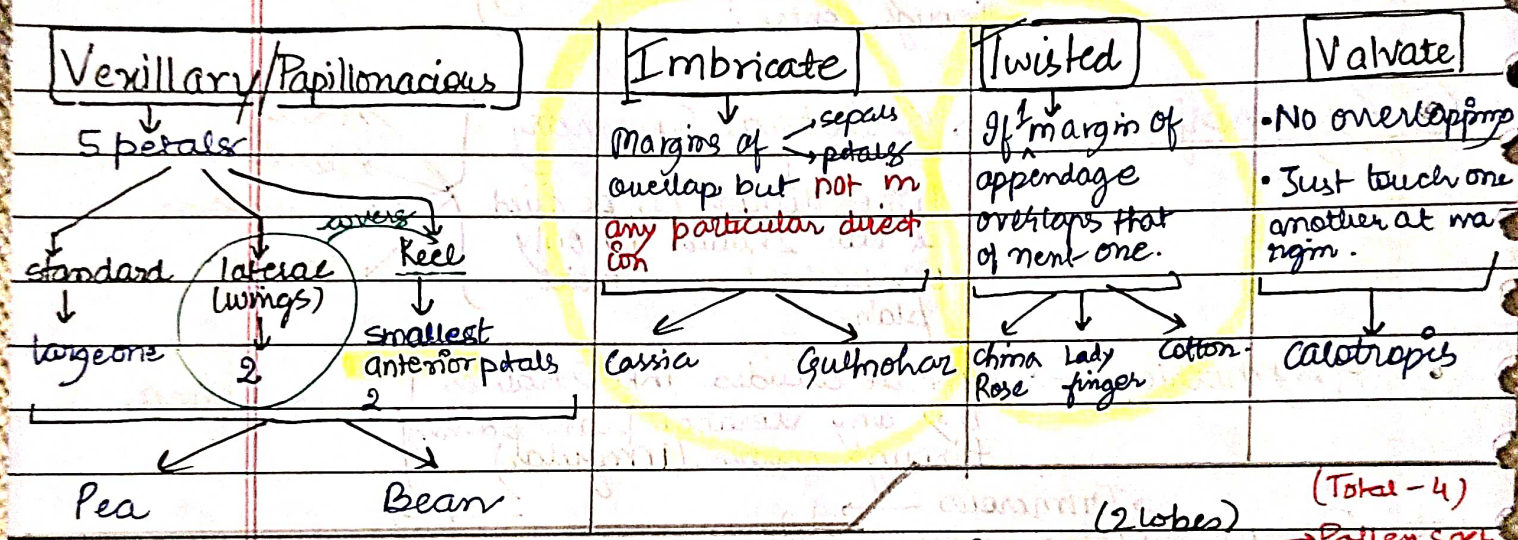 Vexillary/Papillonacious
5 petals
covers
standard
lateral
(wings)
Keel
large one
2
smallest
anterior petals
2
Pea
Bean
Imbricate
Margins of
sepals
petals
overlap but not in
any particular direct
ion
Cassia
Gulmohar
Twisted
If 1 margin of
appendage
overlaps that
of next one.
China
Rose
Lady
finger
Cotton.
Valvate
• No overlapping
• Just touch one
another at ma-
rgin.
Calotropis
(Total - 4)
(2 lobes)